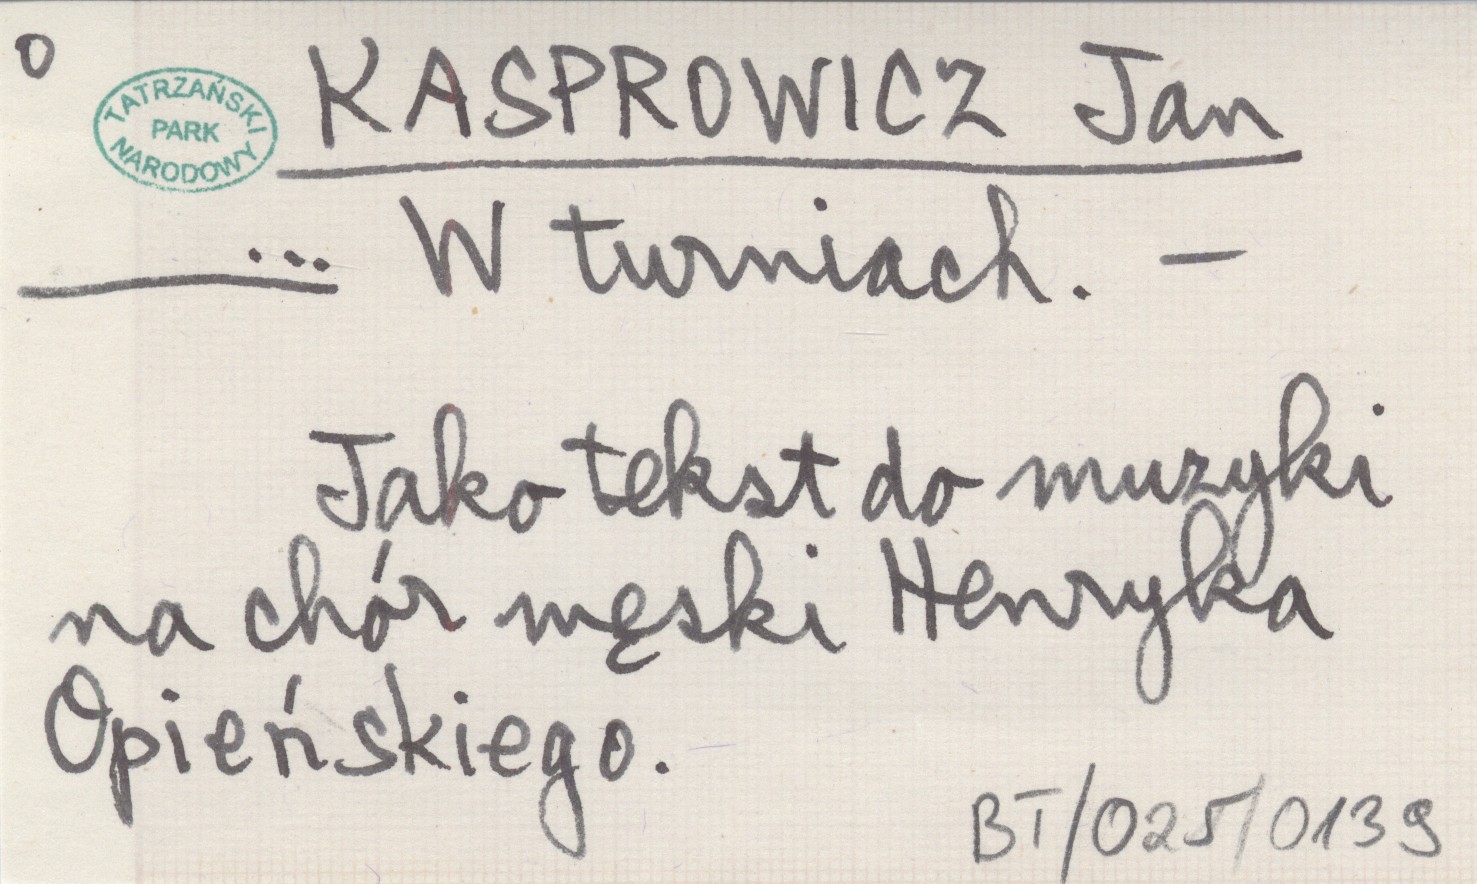 O
TATRZAŃSKI
PARK
NARODOWY
KASPROWICZ Jan
... W turniach. —
Jako tekst do muzyki
na chór męski Henryka
Opieńskiego.
BT/025/0139